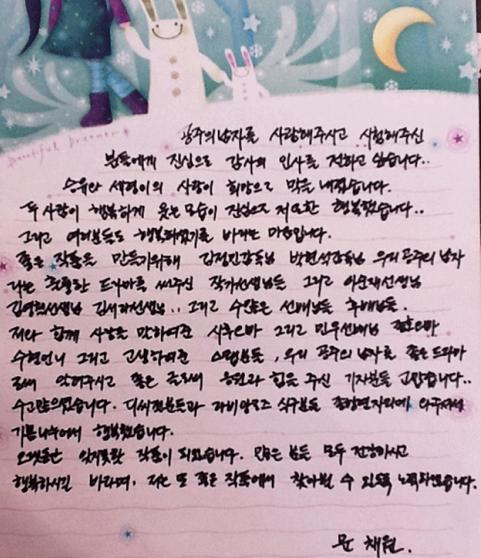 Beautiful Dreamer
공주의남자를 사랑해주시고 시청해주신
분들에게 진심으로 감사의 인사를 전하고 싶습니다..
승유와 세령이의 사랑이 희망으로 막을 내렸습니다.
두 사람이 행복하게 웃는 모습이 진심으로 저 또한 행복했습니다..
그리고 여러분들도 행복하셨기를 바라는 마음입니다.
좋은 작품을 만들기위해 김정민감독님 박현석감독님 우리 공주의 남자
라는 훌륭한 드라마를 써주신 작가선생님들 그리고 이순재선생님
김영철선생님 김서라선생님.. 그리고 수많은 선배님들 후배님들.
저와 함께 사랑을 말하여준 시후오빠 그리고 민우선배님 오빠
수현언니 그리고 고생하여준 스탭분들, 우리 공주의 남자를 좋은 드라마
로써 안아주시고 좋은 글로써 응원과 힘을 주신 기자분들 고맙습니다..
수고많으셨습니다. 디씨분들과 식구분들 종방연자리에 와주셔서
기쁨나누어서 행복했습니다.
오랫동안 잊지못할 작품이 되었습니다. 많은 분들 모두 건강하시고
행복하시길 바라며, 저는 또 좋은 작품에서 찾아뵐 수 있도록 노력하겠습니다.
문 채원.